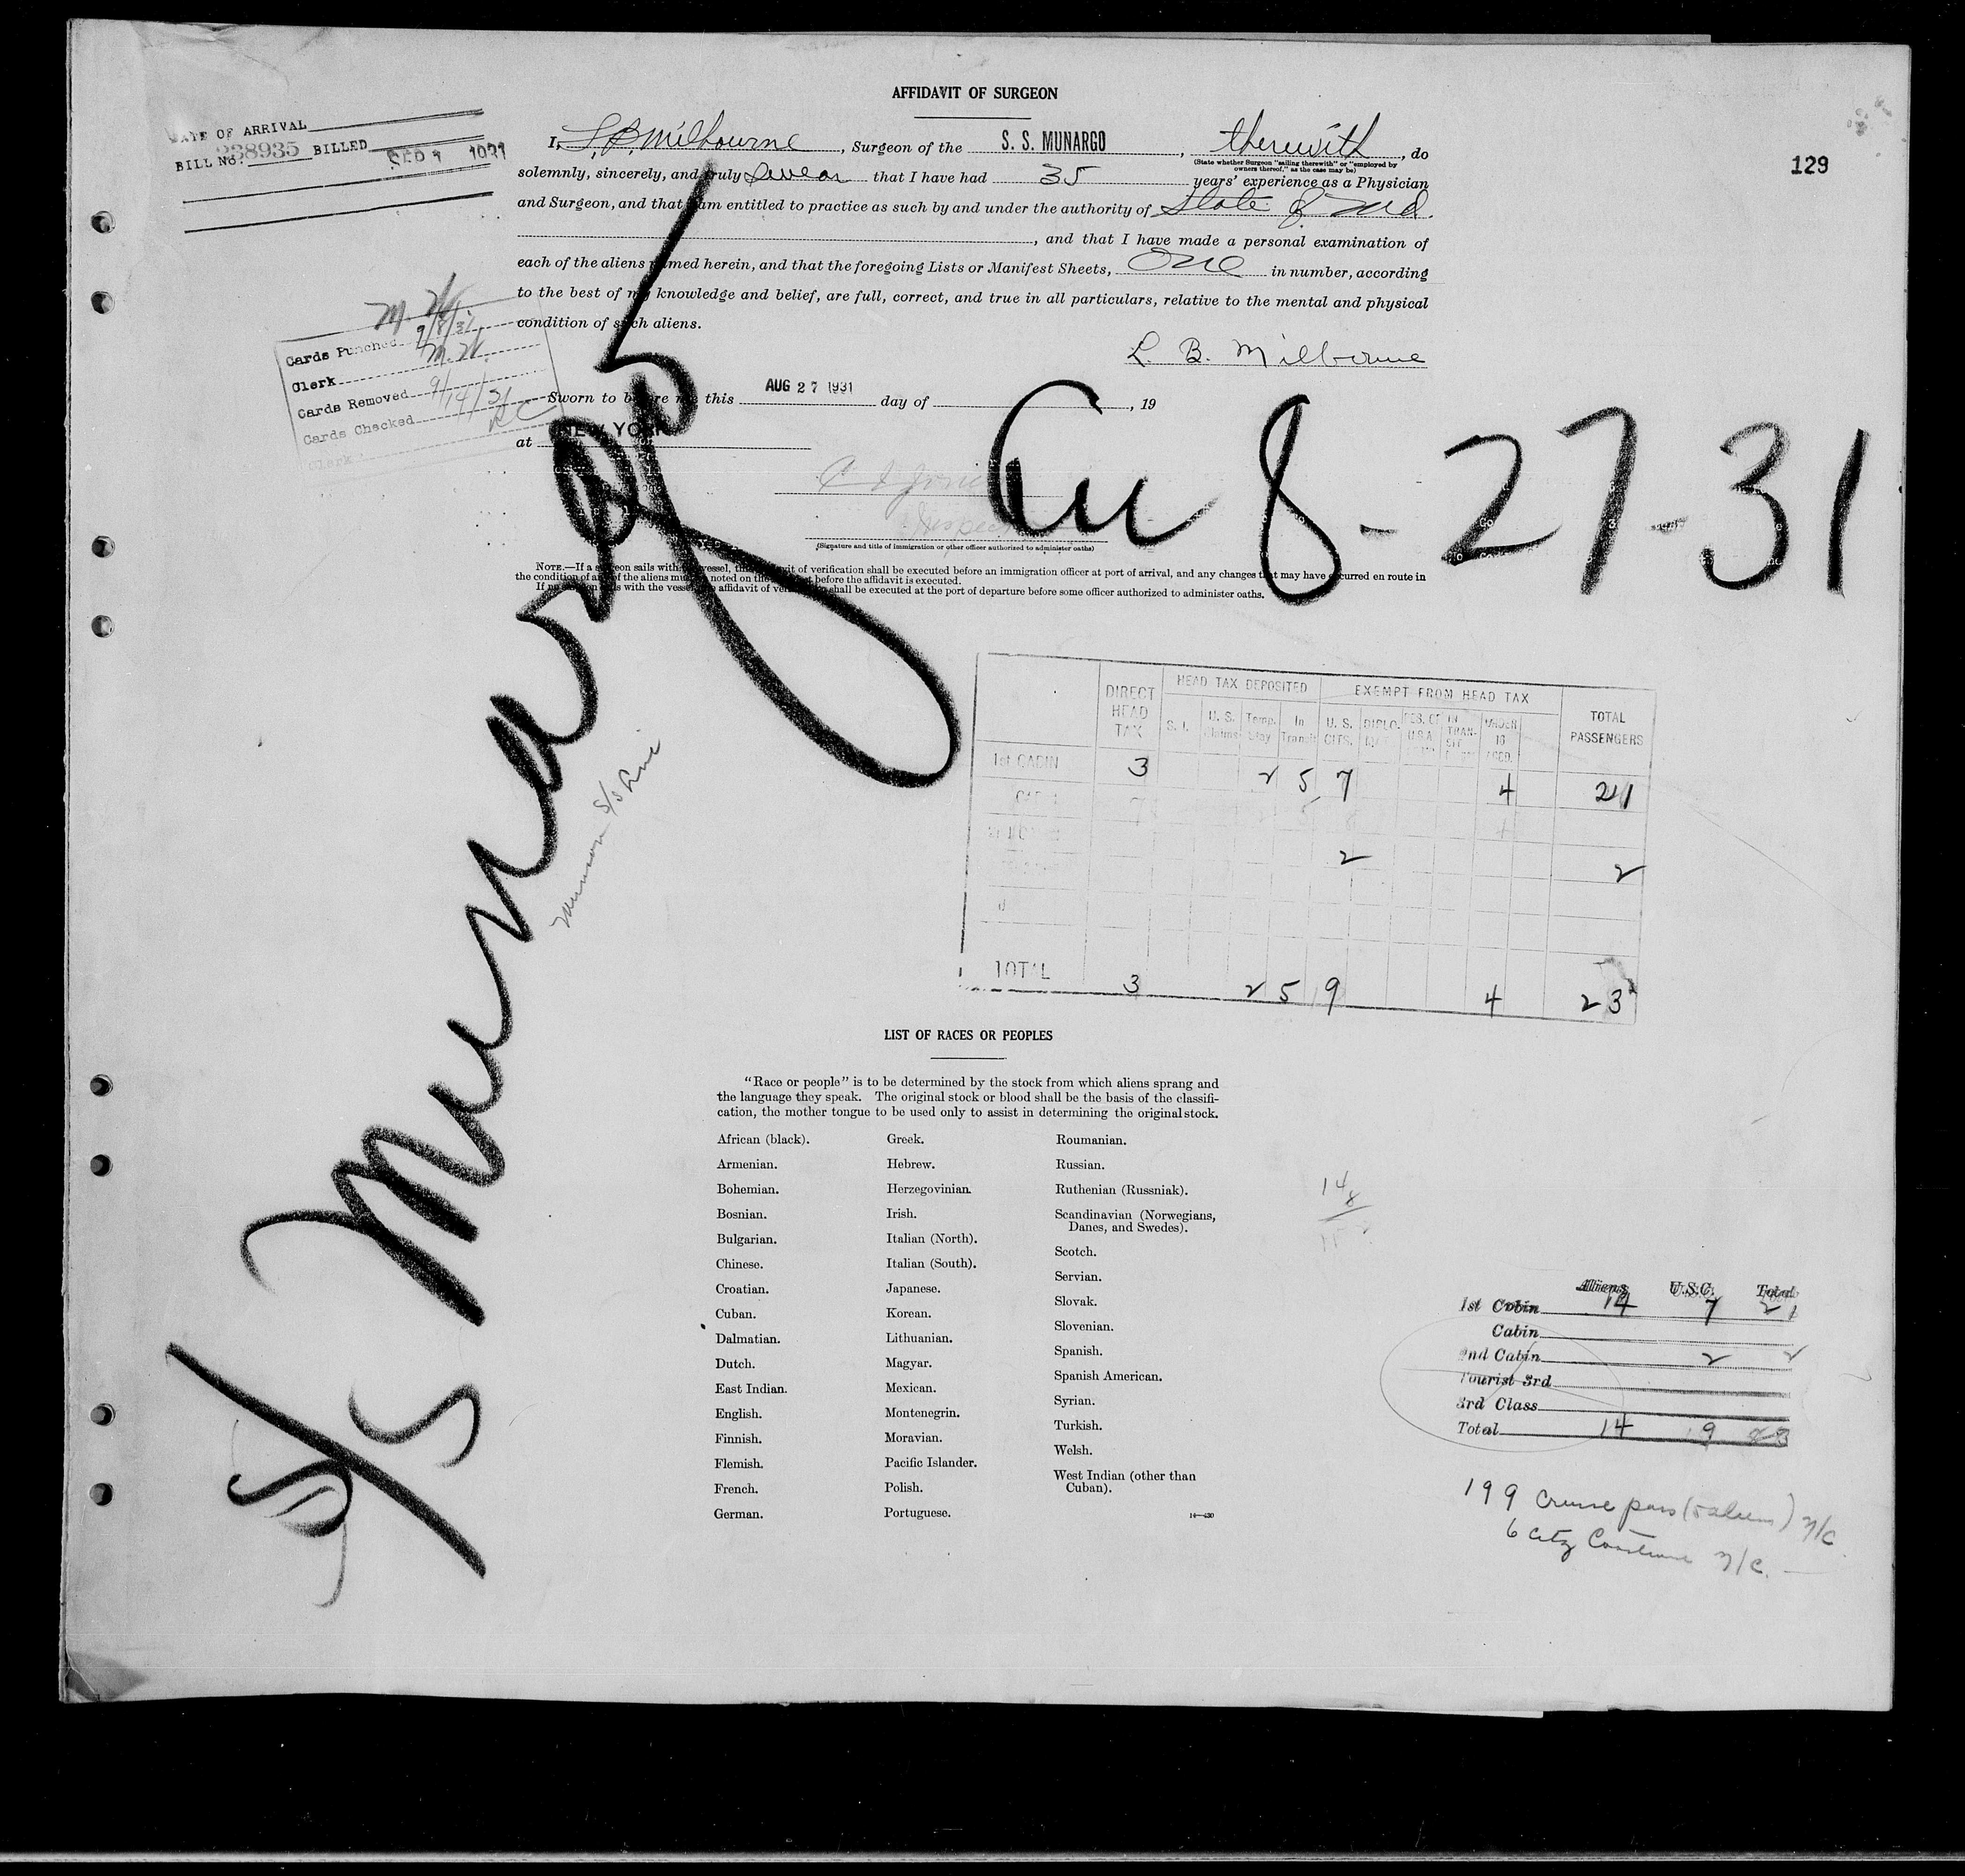 AFFIDAVIT OF SURGEON
DATE OF ARRIVAL
BILL No. 238935 BILLED SEP 1931
129
I, L. B. Milbourne, Surgeon of the S. S. MUNARGO, therewith, do
(State whether Surgeon "sailing therewith" or "employed by
owners thereof," as the case may be)
solemnly, sincerely, and truly swear that I have had 35 years' experience as a Physician
and Surgeon, and that I am entitled to practice as such by and under the authority of State of Md.
, and that I have made a personal examination of
each of the aliens named herein, and that the foregoing Lists or Manifest Sheets, One in number, according
to the best of my knowledge and belief, are full, correct, and true in all particulars, relative to the mental and physical
condition of such aliens.
L. B. Milbourne
Cards Punched 9/8/31
Clerk M. H.
Cards Removed 9/14/31
Cards Checked
Clerk
Sworn to before me this AUG 27 1931 day of , 19
at NEW YORK
(Signature and title of immigration or other officer authorized to administer oaths)
8-27-31
S/S Munargo
Munson S/S Line
NOTE.—If a surgeon sails with the vessel, this affidavit of verification shall be executed before an immigration officer at port of arrival, and any changes that may have occurred en route in
the condition of any of the aliens must be noted on the manifest before the affidavit is executed.
If no surgeon sails with the vessel, the affidavit of verification shall be executed at the port of departure before some officer authorized to administer oaths.
DIRECT HEAD TAX HEAD TAX DEPOSITED EXEMPT FROM HEAD TAX TOTAL PASSENGERS
S. I. U. S. Claims Temp. Stay In Transit U. S. CITS. DIPLO. RES. OF U.S.A. IN TRANSIT UNDER 16 ACCD.
1st CABIN 3 2 5 7 4 21
2 2
TOTAL 3 2 5 9 4 23
LIST OF RACES OR PEOPLES
"Race or people" is to be determined by the stock from which aliens sprang and
the language they speak. The original stock or blood shall be the basis of the classifi-
cation, the mother tongue to be used only to assist in determining the original stock.
African (black).
Armenian.
Bohemian.
Bosnian.
Bulgarian.
Chinese.
Croatian.
Cuban.
Dalmatian.
Dutch.
East Indian.
English.
Finnish.
Flemish.
French.
German.
Greek.
Hebrew.
Herzegovinian.
Irish.
Italian (North).
Italian (South).
Japanese.
Korean.
Lithuanian.
Magyar.
Mexican.
Montenegrin.
Moravian.
Pacific Islander.
Polish.
Portuguese.
Roumanian.
Russian.
Ruthenian (Russniak).
Scandinavian (Norwegians,
Danes, and Swedes).
Scotch.
Servian.
Slovak.
Slovenian.
Spanish.
Spanish American.
Syrian.
Turkish.
Welsh.
West Indian (other than
Cuban).
14
8
Aliens U.S.C. Total
1st Cabin 14 7 21
Cabin
2nd Cabin 2 2
Tourist 3rd
3rd Class
Total 14 9 23
199 Cruise pass (5 aliens) N/C
6 City N/C.